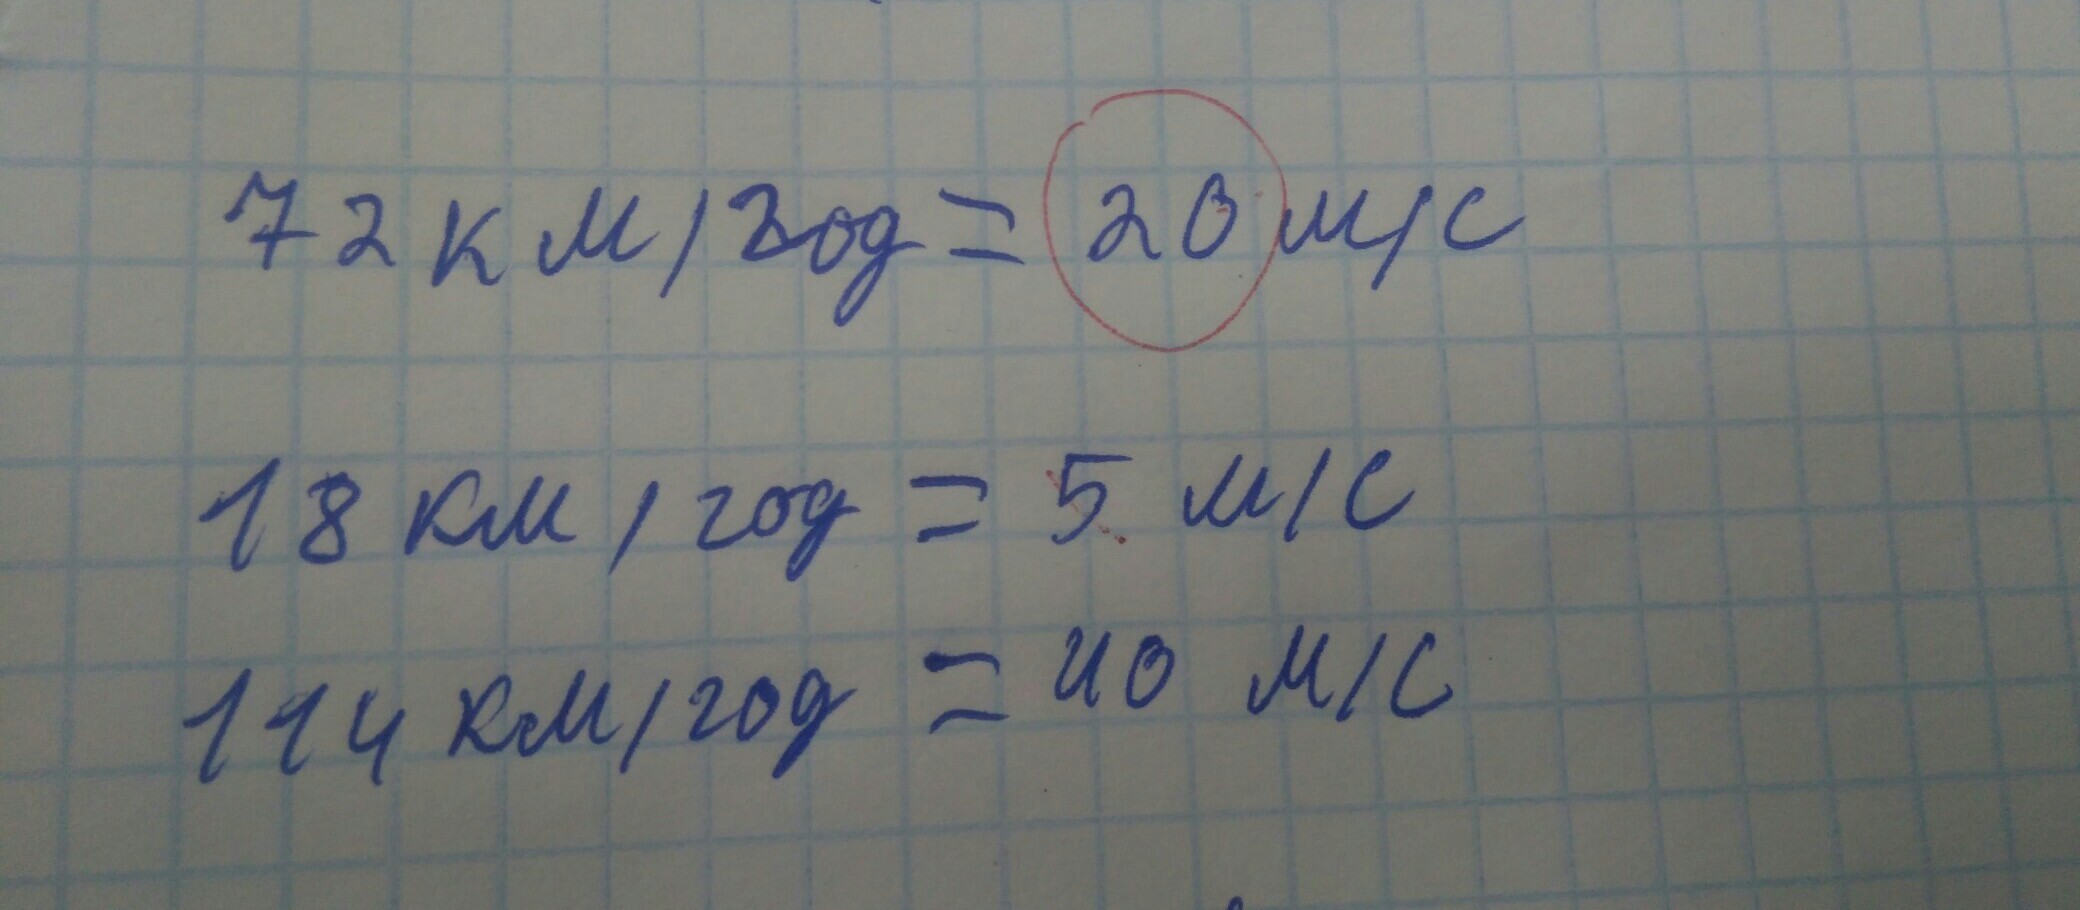 72 км/год = 20 м/с
18 км/год = 5 м/с
114 км/год = 40 м/с